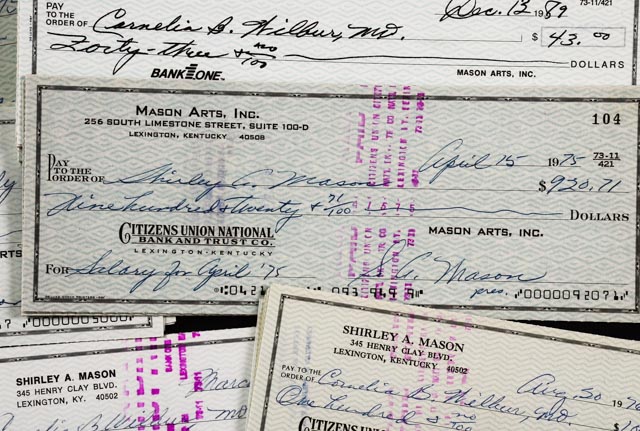 PAY TO THE ORDER OF Cornelia B. Wilbur, MD. Dec. 13 1989 73-11/421
$ 43.00
Forty-three & no/100 DOLLARS
BANK ONE MASON ARTS, INC.
MASON ARTS, INC. 104
256 SOUTH LIMESTONE STREET, SUITE 100-D
LEXINGTON, KENTUCKY 40508
April 15 1975 73-11/421
PAY TO THE ORDER OF Shirley A. Mason $ 920.71
Nine hundred & twenty & 71/100 DOLLARS
CITIZENS UNION NATIONAL BANK AND TRUST CO.
LEXINGTON • KENTUCKY
MASON ARTS, INC.
FOR Salary for April '75 S. A. Mason pres.
SHIRLEY A. MASON
345 HENRY CLAY BLVD.
LEXINGTON, KENTUCKY 40502
Aug. 30 19
PAY TO THE ORDER OF Cornelia B. Wilbur, MD.
One hundred & no/100
CITIZENS
SHIRLEY A. MASON
345 HENRY CLAY BLVD.
LEXINGTON, KY. 40502